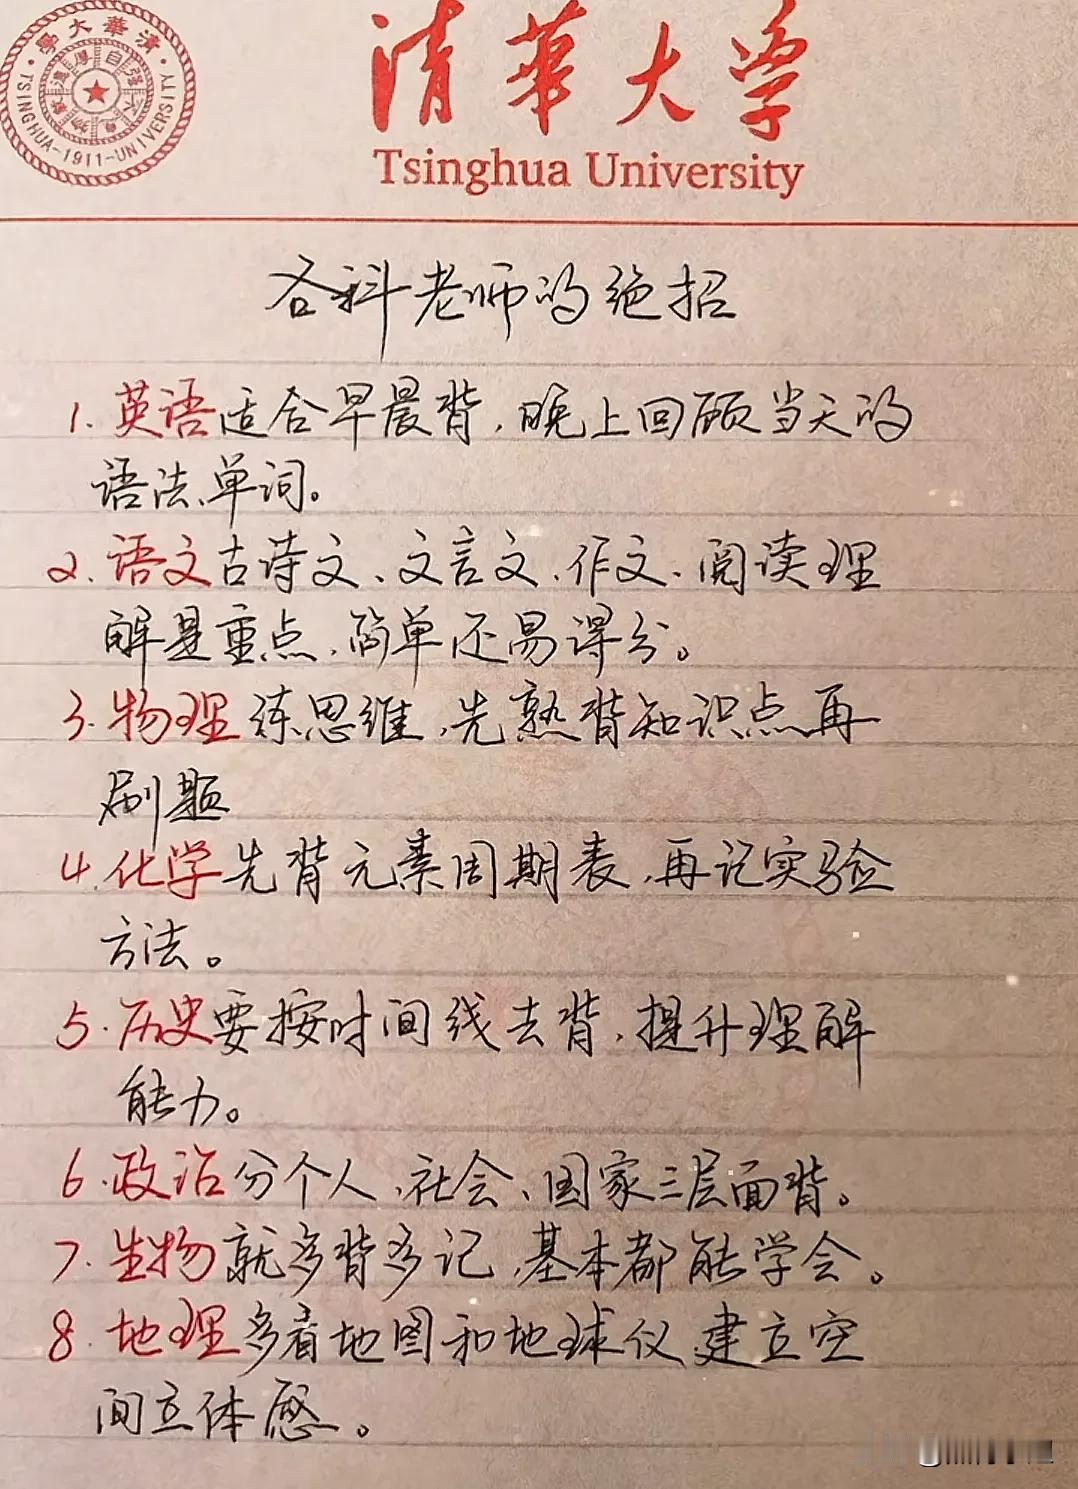 清華大学
Tsinghua University
清華大學
TSINGHUA-1911-UNIVERSITY
各科老师的绝招
1. 英语适合早晨背,晚上回顾当天的
语法、单词。
2. 语文古诗文、文言文、作文、阅读理
解是重点,简单还易得分。
3. 物理练思维,先熟背知识点再
刷题
4. 化学先背元素周期表,再记实验
方法。
5. 历史要按时间线去背,提升理解
能力。
6. 政治分个人、社会、国家三层面背。
7. 生物就多背多记,基本都能学会。
8. 地理多看地图和地球仪,建立空
间立体感。